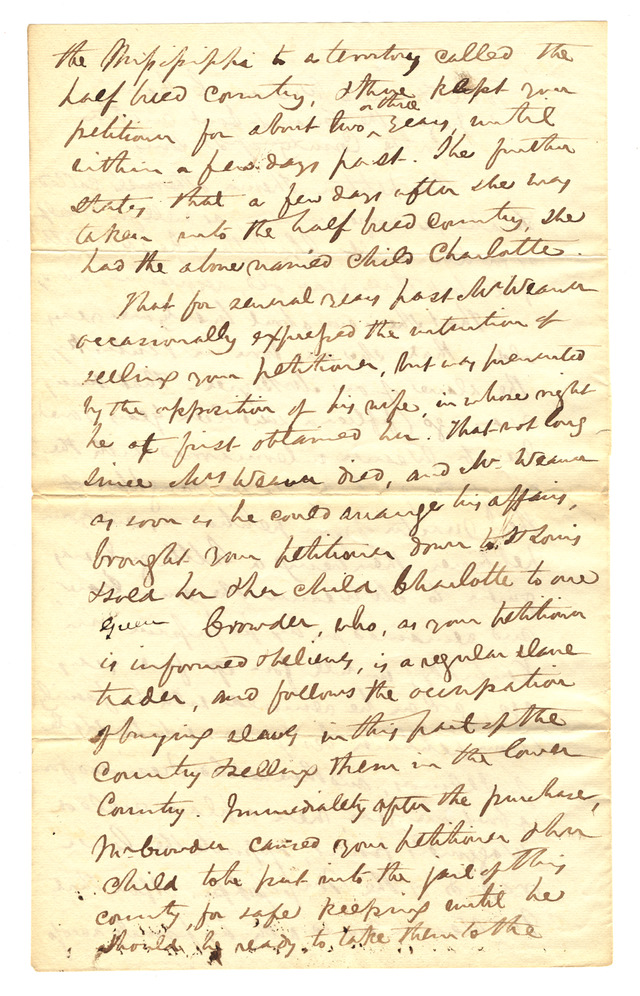 the Missisippi to a territory called the
half breed Country, & there kept your
or three
petitioner for about two years, until
within a few days past. She further
states that a few days after she was
taken into the half breed Country, she
had the above named child Charlotte.
That for several years past Mr Weaver
occasionally expressed the intention of
selling your petitioner, but was prevented
by the opposition of his wife, in whose right
he at first obtained her. That not long
since Mrs Weaver died, and Mr Weaver
as soon as he could arrange his affairs,
brought your petitioner down to St Louis
& sold her & her child Charlotte to one
Green Crowder, who, as your petitioner
is informed & believes, is a regular slave
trader, and follows the occupation
of buying slaves in this part of the
Country & selling them in the lower
Country. Immediately after the purchase,
Mr Crowder caused your petitioner & her
child to be put into the jail of this
county, for safe keeping until he
should be ready to take them to the